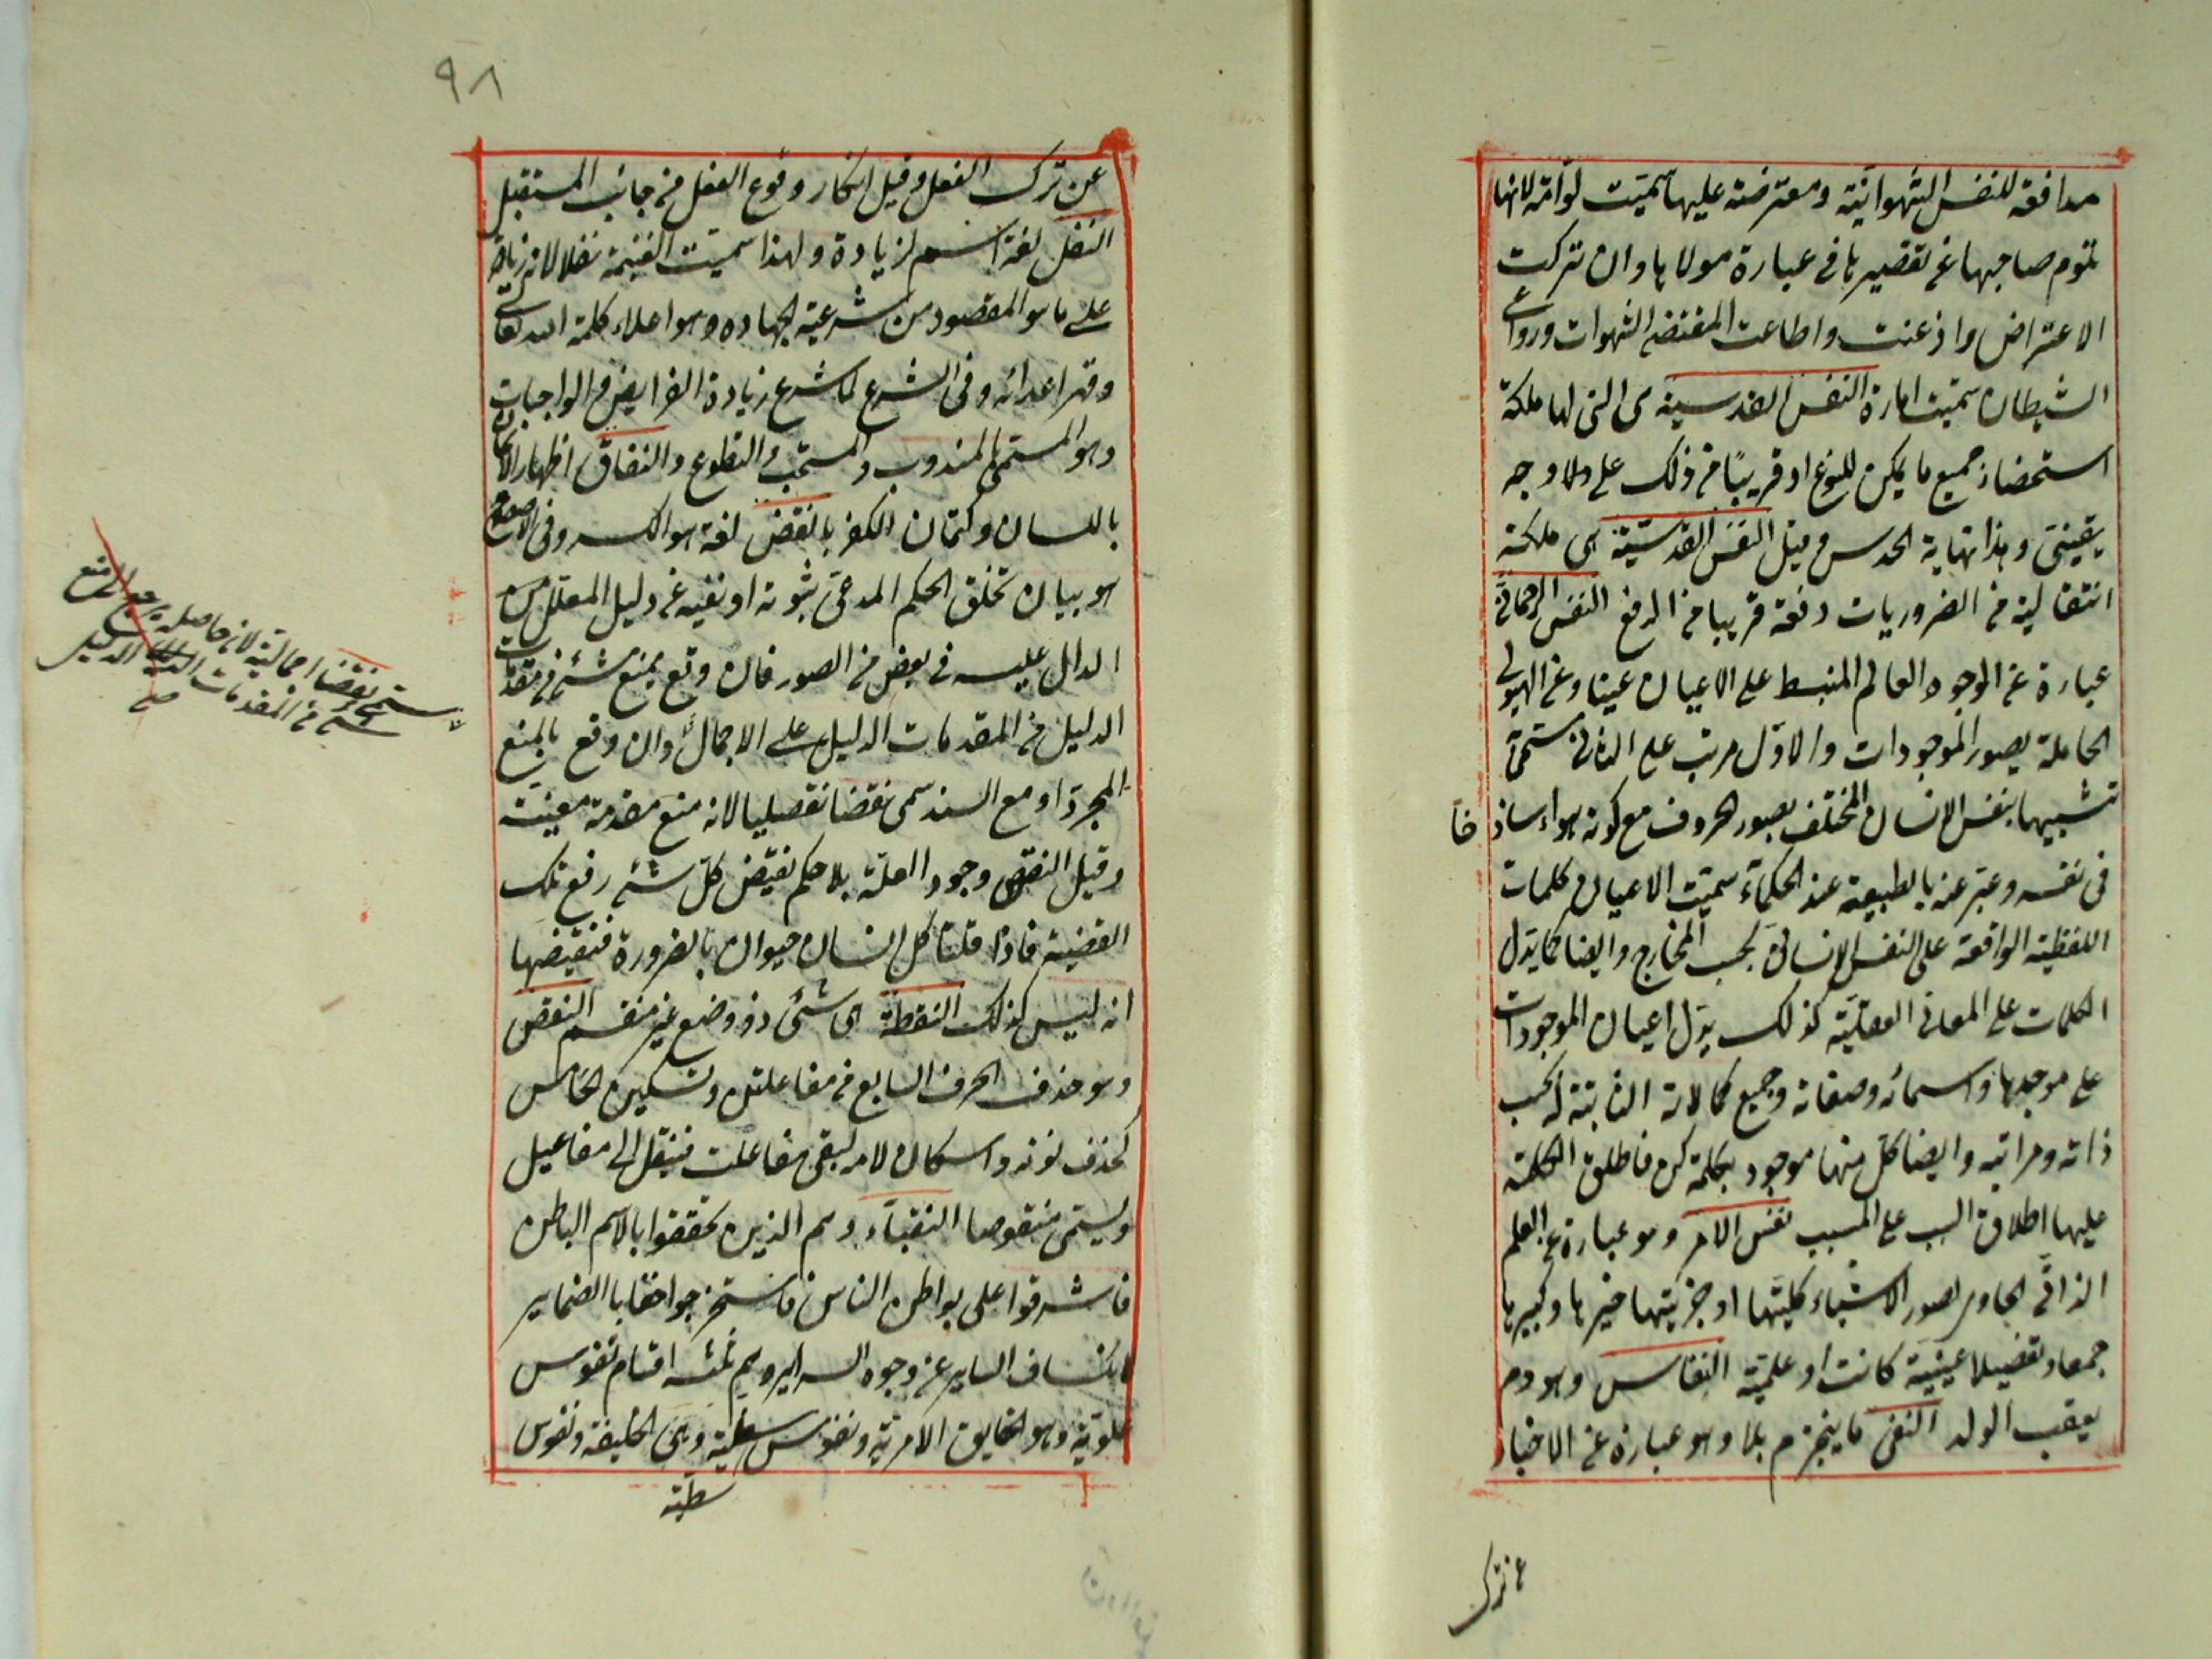 مدافعة للنفس الشهوانية ومعترضة عليها سميت لوامة لانها
تلوم صاحبها عن تقصيرها في عبارة مولاها وان تركت
الاعتراض واذعنت واطاعت المقتضى الشهوات ودواعى
الشيطان سميت امارة النفس القدسية هى التى لها ملكة
استحضار جميع ما يمكن للنوع او قريبا من ذلك على وجه
يقينى وهذا نهاية الحدس وقيل النفس القدسية هى ملكة
انتقالية من الضروريات دفعة قريبا من الدفع النفس الرحمانى
عبارة عن الوجود العالم المنبسط على الاعيان عينا وعن الهيولى
الحاملة بصور الموجودات والاول مرتب على الثانى سمى
تشبيها بنفس الانسان المختلف بصور الحروف مع كونه هواء ساذ
جا
فى نفسه وعبر عنه بالطبيعة عند الحكماء سميت الاعيان كلمات
اللفظية الواقعة على النفس الانسانى بحسب المخارج وايضا كما يدل
الكلمات على المعانى العقلية كذلك يدل اعيان الموجودات
على موجدها واسمائه وصفاته وجميع كمالاته الثابتة له بحسب
ذاته ومراتبه وايضا كل منها موجود بكلمة كن فاطلق الكلمة
عليها اطلاق السبب على المسبب نفس الامر وهو عبارة عن العلم
الذاتى الحاوى لصور الاشياء كليتها او جزئيتها صغيرها وكبيرها
جمعا وتفصيلا عينية كانت او علمية النفاس وهو دم
يعقب الولد النفى ما ينجزم بلا وهو عبارة عن الاخبار
عن ترك
٩٨
عن ترك الفعل وقيل انكار وقوع الفعل من جانب المستقبل
النفل لغة اسم لزيادة ولهذا سميت الغنيمة نفلا لانه زيادة
على ما هو المقصود من شرعية الجهاده وهو اعلاء كلمة الله تعالى
وقهر اعدائه وفى الشرع لما شرع زيادة الفرايض والواجبات
وهو المسمى بالمندوب والمستحب والتطوع والنفاق اظهار الايمان
باللسان وكتمان الكفر بالنقض لغة هو الكسر وفى الاصطلاح
هو بيان تخلف الحكم المدعى ثبوته او نفيه عن دليل المعلل من
الدال عليه فى بعض من الصور فان وقع بمنع شئ من مقدمات
الدليل من المقدمات الدليل على الاجمال وان وقع بالمنع
المجرد او مع السند سمى نقضا تفصيليا لانه منع مقدمة معينة
وقيل النقض وجود العلة بلا حكم نقيض كل شئ رفع تلك
القضية فاذا قلنا كل انسان حيوان بالضرورة فنقيضها
انه ليس كذلك النقطة هى شئ ذو وضع غير منقسم النقص
وهو حذف الحرف السابع من مفاعلتن وتسكين الخامس
كحذف نونه واسكان لامه ليبقى مفاعلت فينقل الى مفاعيل
ويسمى منقوصا النقباء وهم الذين تحققوا بالاسم الباطن
فاشرفوا على بواطن الناس فاستخرجوا خفايا الضماير
لانكشاف الساير عن وجوه السراير وهم ثلثه اقسام نفوس
علوية وهو الحقايق الامرية ونفوس سفلية وهى الخليقة ونفوس
سمى نقضا اجماليا لان حاصله يرجع الى منع
شئ من المقدمات الدليل
صح